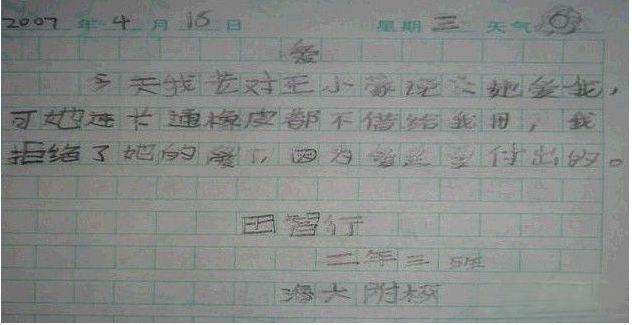 2007 年 4 月 15 日 星期 三 天气
爱
今天我 对王小 说:她爱我,
可她连卡通橡皮都不借给我用,我
拒绝了她的爱了,因为爱是要付出的。
田智行
二年三班
海大附校